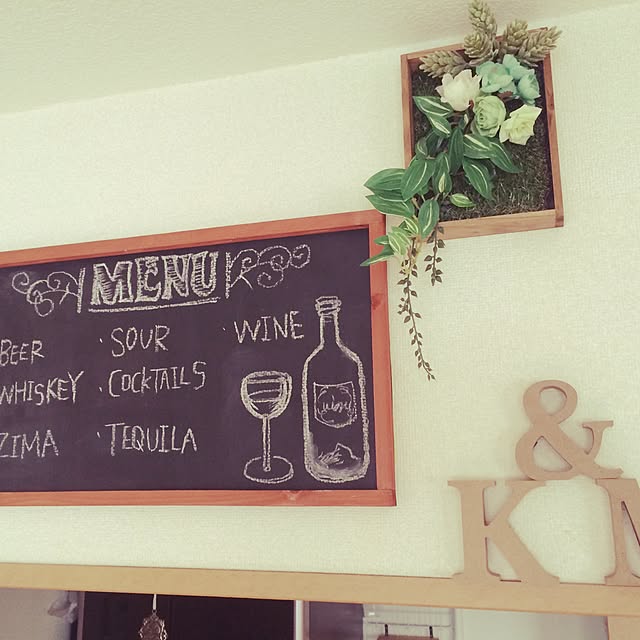 MENU
BEER
· SOUR
· WINE
WHISKEY
· COCKTAILS
ZIMA
· TEQUILA
&
K M